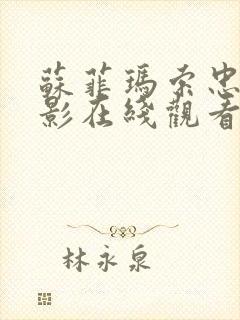 蘇菲瑪索忠
影在綫觀看
林永泉